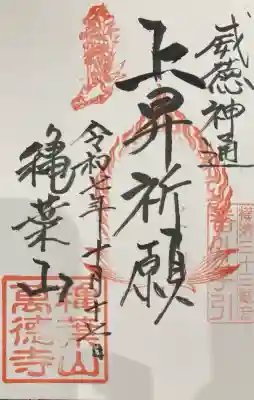 威徳神通
上昇祈願
令和七年十一月十六日
穐葉山
穐葉山
萬徳寺